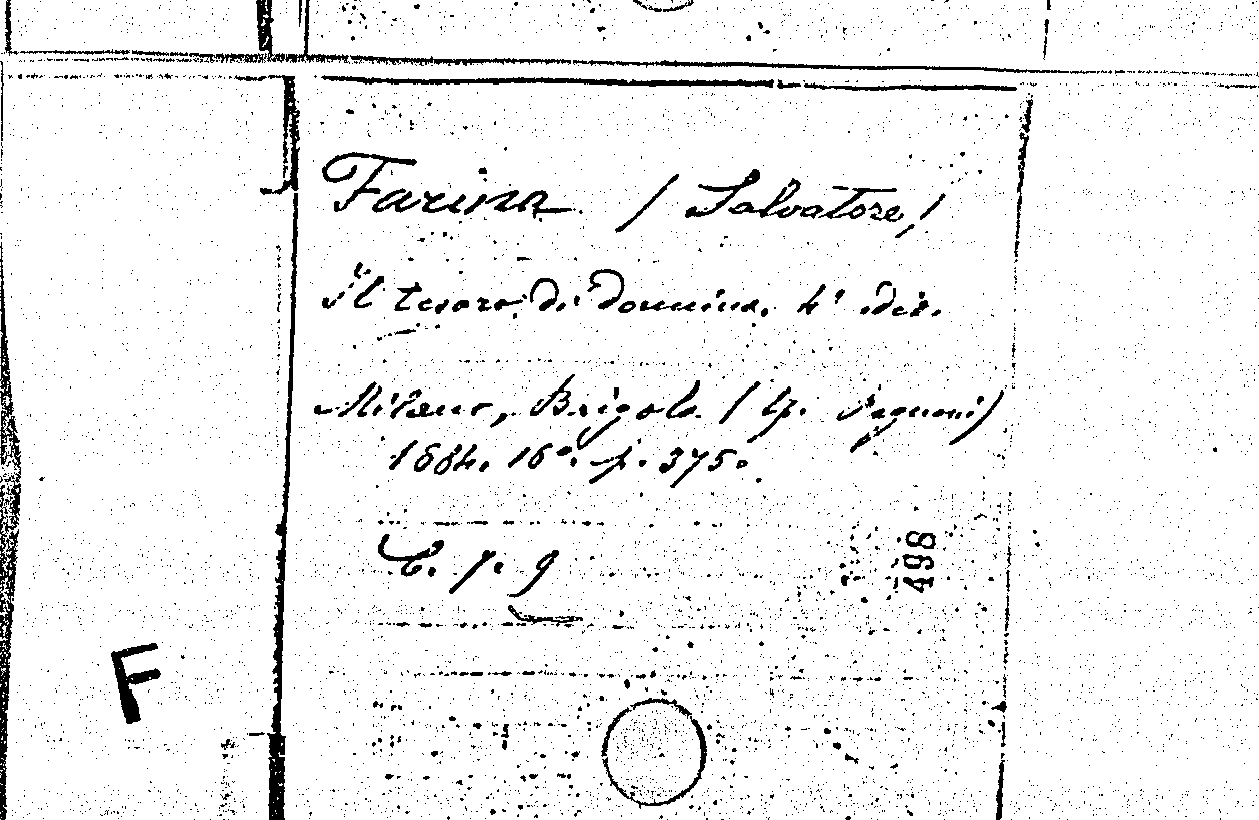 Farina / Salvatore,/
Il tesoro di Donnina. 4ª ediz.
Milano, Brigola / tip. Pagnoni)
1884. 16°. p. 375.
C. 7. 9
498
F